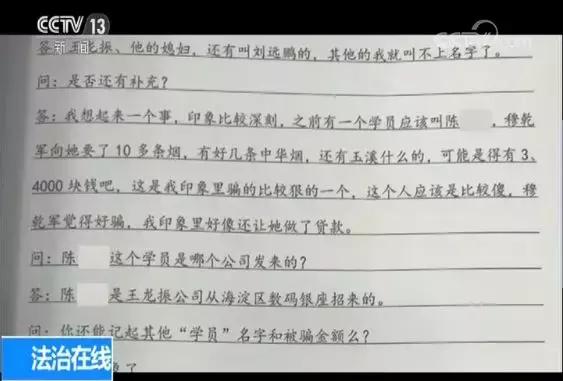 CCTV 13
新闻
CCTV
答：王龙振、他的媳妇，还有叫刘远鹏的，其他的我就叫不上名字了。
问：是否还有补充？
答：我想起来一个事，印象比较深刻，之前有一个学员应该叫陈 ，穆乾
军向她要了10多条烟，有好几条中华烟，还有玉溪什么的，可能是得有3、
4000块钱吧，这是我印象里骗的比较狠的一个，这个人应该是比较傻，穆
乾军觉得好骗，我印象里好像还让她做了贷款。
问：陈 这个学员是哪个公司发来的？
答：陈 是王龙振公司从海淀区数码银座招来的。
问：你还能记起其他“学员”名字和被骗金额么？
法治在线
了